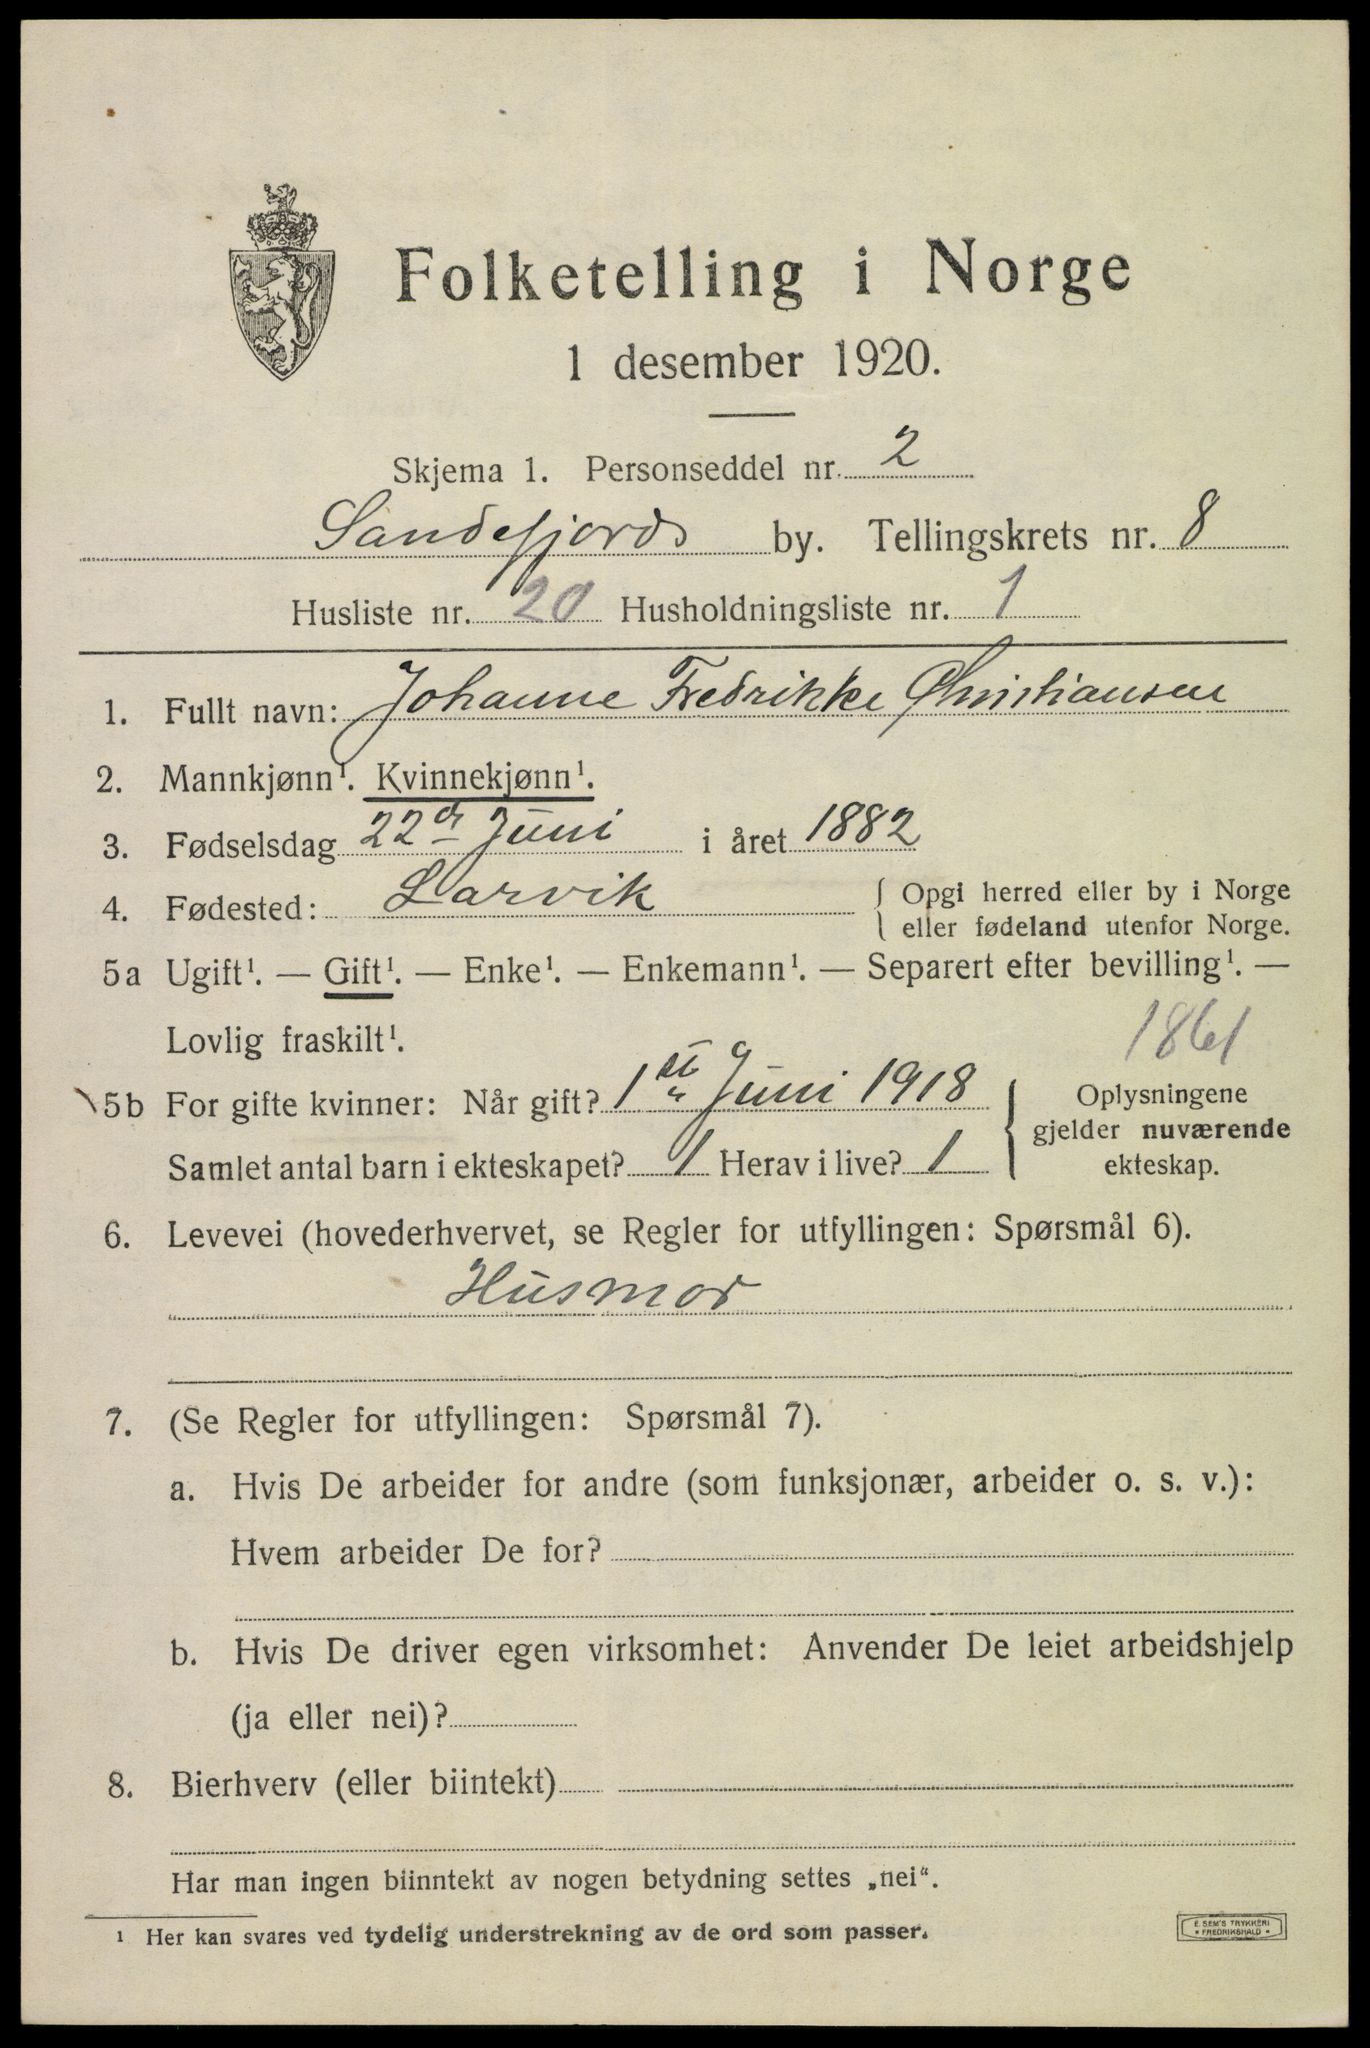 Folketelling i Norge
1 desember 1920.
Skjema 1. Personseddel nr. 2
Sandefjords by. Tellingskrets nr. 8
Husliste nr. 20 Husholdningsliste nr. 1
1. Fullt navn: Johanne Fredrikke Christiansen
2. Mannkjønn¹. Kvinnekjønn¹.
3. Fødselsdag 22de Juni i året 1882
4. Fødested: Larvik { Opgi herred eller by i Norge
eller fødeland utenfor Norge.
5a Ugift¹. — Gift¹. — Enke¹. — Enkemann¹. — Separert efter bevilling¹. —
Lovlig fraskilt¹.
1861
5b For gifte kvinner: Når gift? 1ste Juni 1918
Samlet antal barn i ekteskapet? 1 Herav i live? 1
Oplysningene
gjelder nuværende
ekteskap.
6. Levevei (hovederhvervet, se Regler for utfyllingen: Spørsmål 6).
Husmor
7. (Se Regler for utfyllingen: Spørsmål 7).
a. Hvis De arbeider for andre (som funksjonær, arbeider o. s. v.):
Hvem arbeider De for?
b. Hvis De driver egen virksomhet: Anvender De leiet arbeidshjelp
(ja eller nei)?
8. Bierhverv (eller biintekt)
Har man ingen biinntekt av nogen betydning settes „nei“.
¹ Her kan svares ved tydelig understrekning av de ord som passer.
E. SEM'S TRYKKERI
* FREDRIKSHALD *